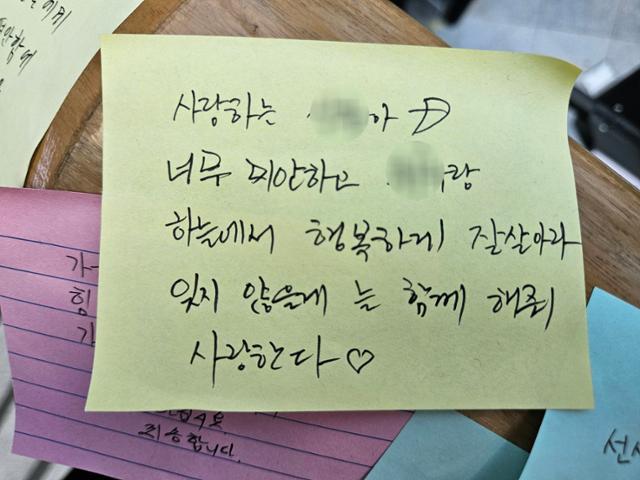 사랑하는 아
너무 미안하고 랑
하늘에서 행복하게 잘살아라
잊지 않을게 늘 함께 해줘
사랑한다♡
힘
죄송합니다.